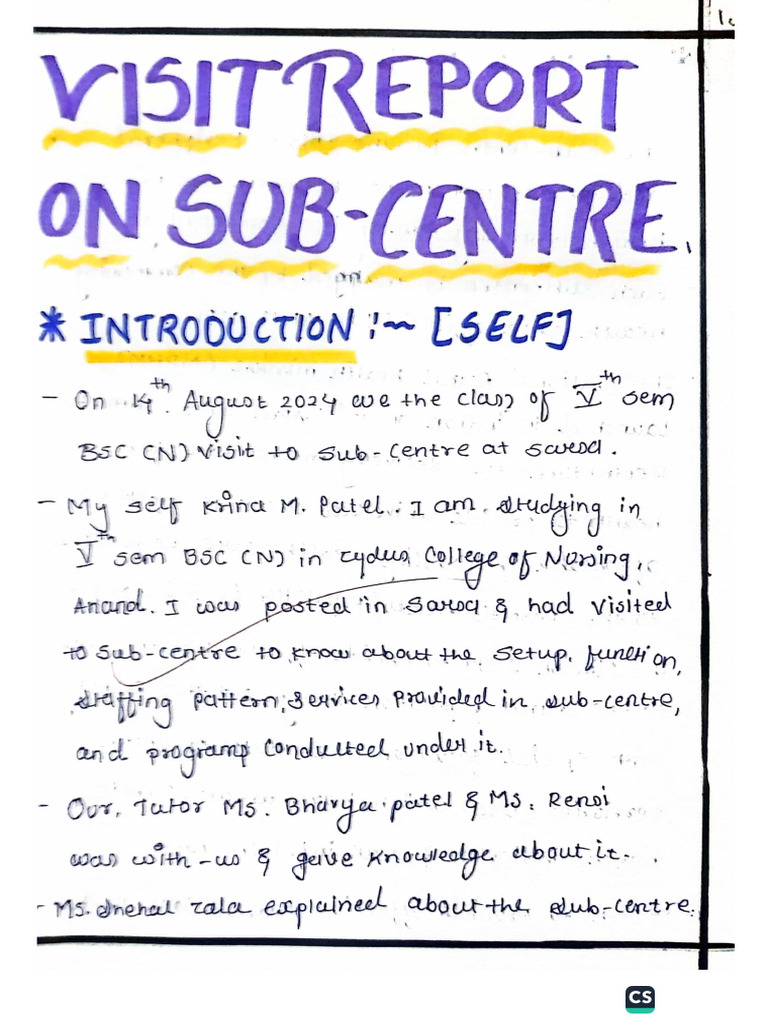 VISIT REPORT
ON SUB-CENTRE.
* INTRODUCTION :~ [SELF]
- On 14th August 2024 we the class of Vth sem
BSC (N) visit to sub-centre at sarsa.
- My self Krina M. Patel. I am studying in
Vth sem BSC (N) in zydus College of Nursing,
Anand. I was posted in Sarsa & had visited
to sub-centre to know about the setup, function,
staffing pattern, services provided in sub-centre,
and programs conducted under it.
- Our, Tutor Ms. Bhavya patel & Ms. Rensi
was with-us & gave knowledge about it.
- Ms. snehal zala explained about the sub-centre.
CS